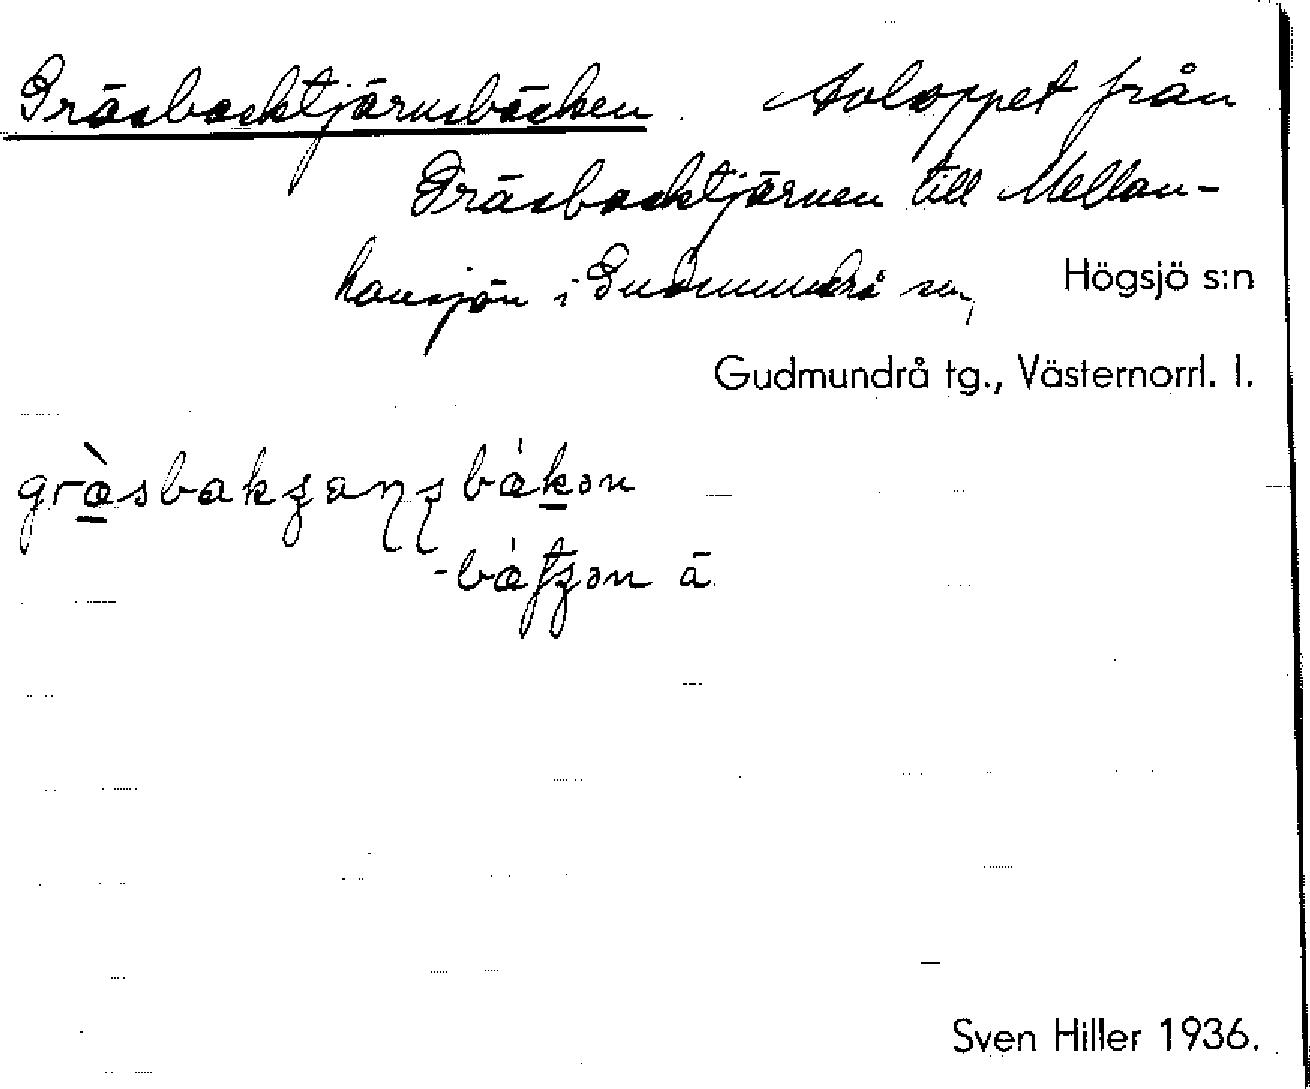 Gräsbacktjärnsbäcken. Avloppet från
Gräsbacktjärnen till Mellan-
hansjön i Gudmundrå sn, Högsjö s:n
Gudmundrå tg., Västernorrl. l.
-
ä.
Sven Hiller 1936.